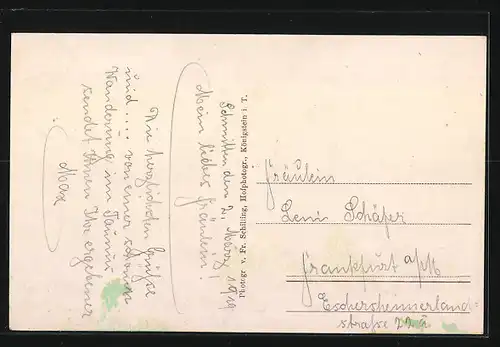 Schmitten den 2. März 1919
Mein liebes Fräulein!
Die herzlichsten Grüße
und .... von einer schönen
Wanderung im Taunus
sendet Ihnen Ihr ergebener
Max
Photogr. v. Fr. Schilling, Hofphotogr., Königstein i. T.
Fräulein
Leni Schäfer
Frankfurt a/M
Eschersheimerland-
straße